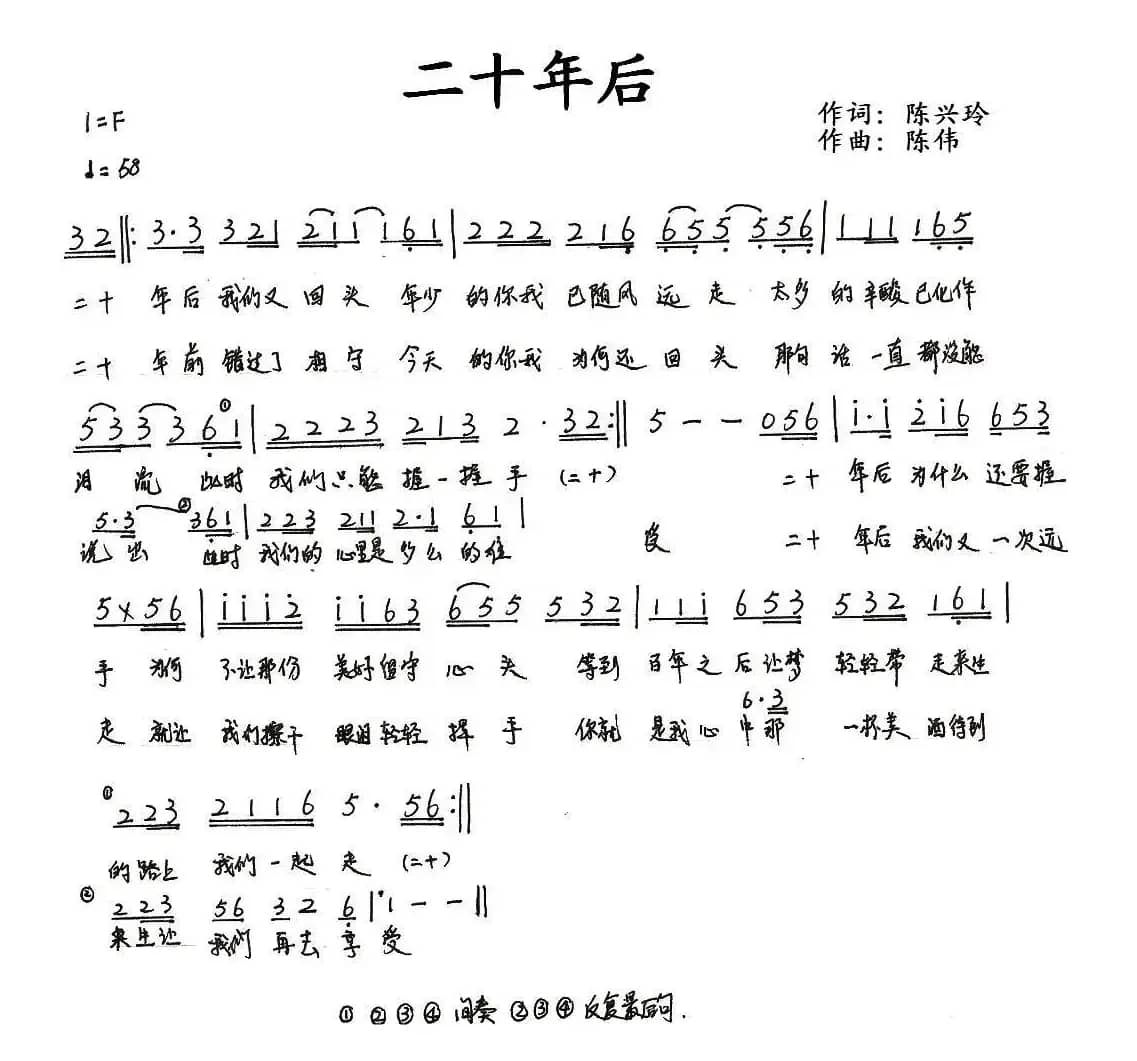 二十年后
1=F
作词：陈兴玲
作曲：陈伟
♩=58
32‖: 3·3 321 211 161 | 222 2216 655 5556 | 111 1165
二十 年后 我们又 回头 年少 的你我 已随风 远走 太多 的辛酸 已化作
二十 年前 错过了 相守 今天 的你我 为何还 回头 那句 话一直 都没能
533 361 ① | 2223 213 2· 32:‖ 5 - - 056 | i·i 2i6 653
泪流 此时 我们只能 握一握手 (二十) 二十 年后 为什么 还要握
5·3 ② 361 | 223 211 2·1 61 |
说出 此时 我们的 心里是 多么 的难 受 二十 年后 我们又 一次远
5×56 | iii2 ii63 655 532 | 11i 653 532 161 |
手 为何 不让那份 美好留守 心头 等到 百年之后让梦 轻轻带 走来生
6·3
走 就让 我们擦干 眼泪轻轻 挥手 你就 是我心中那 一杯美 酒待到
① 223 2116 5· 56:‖
的路上 我们一起 走 (二十)
② 223 56 32 6 | 1 - - ‖
来生让 我们 再去 享受
① ② ③ ④ 间奏 ② ③ ④ 反复最后句.